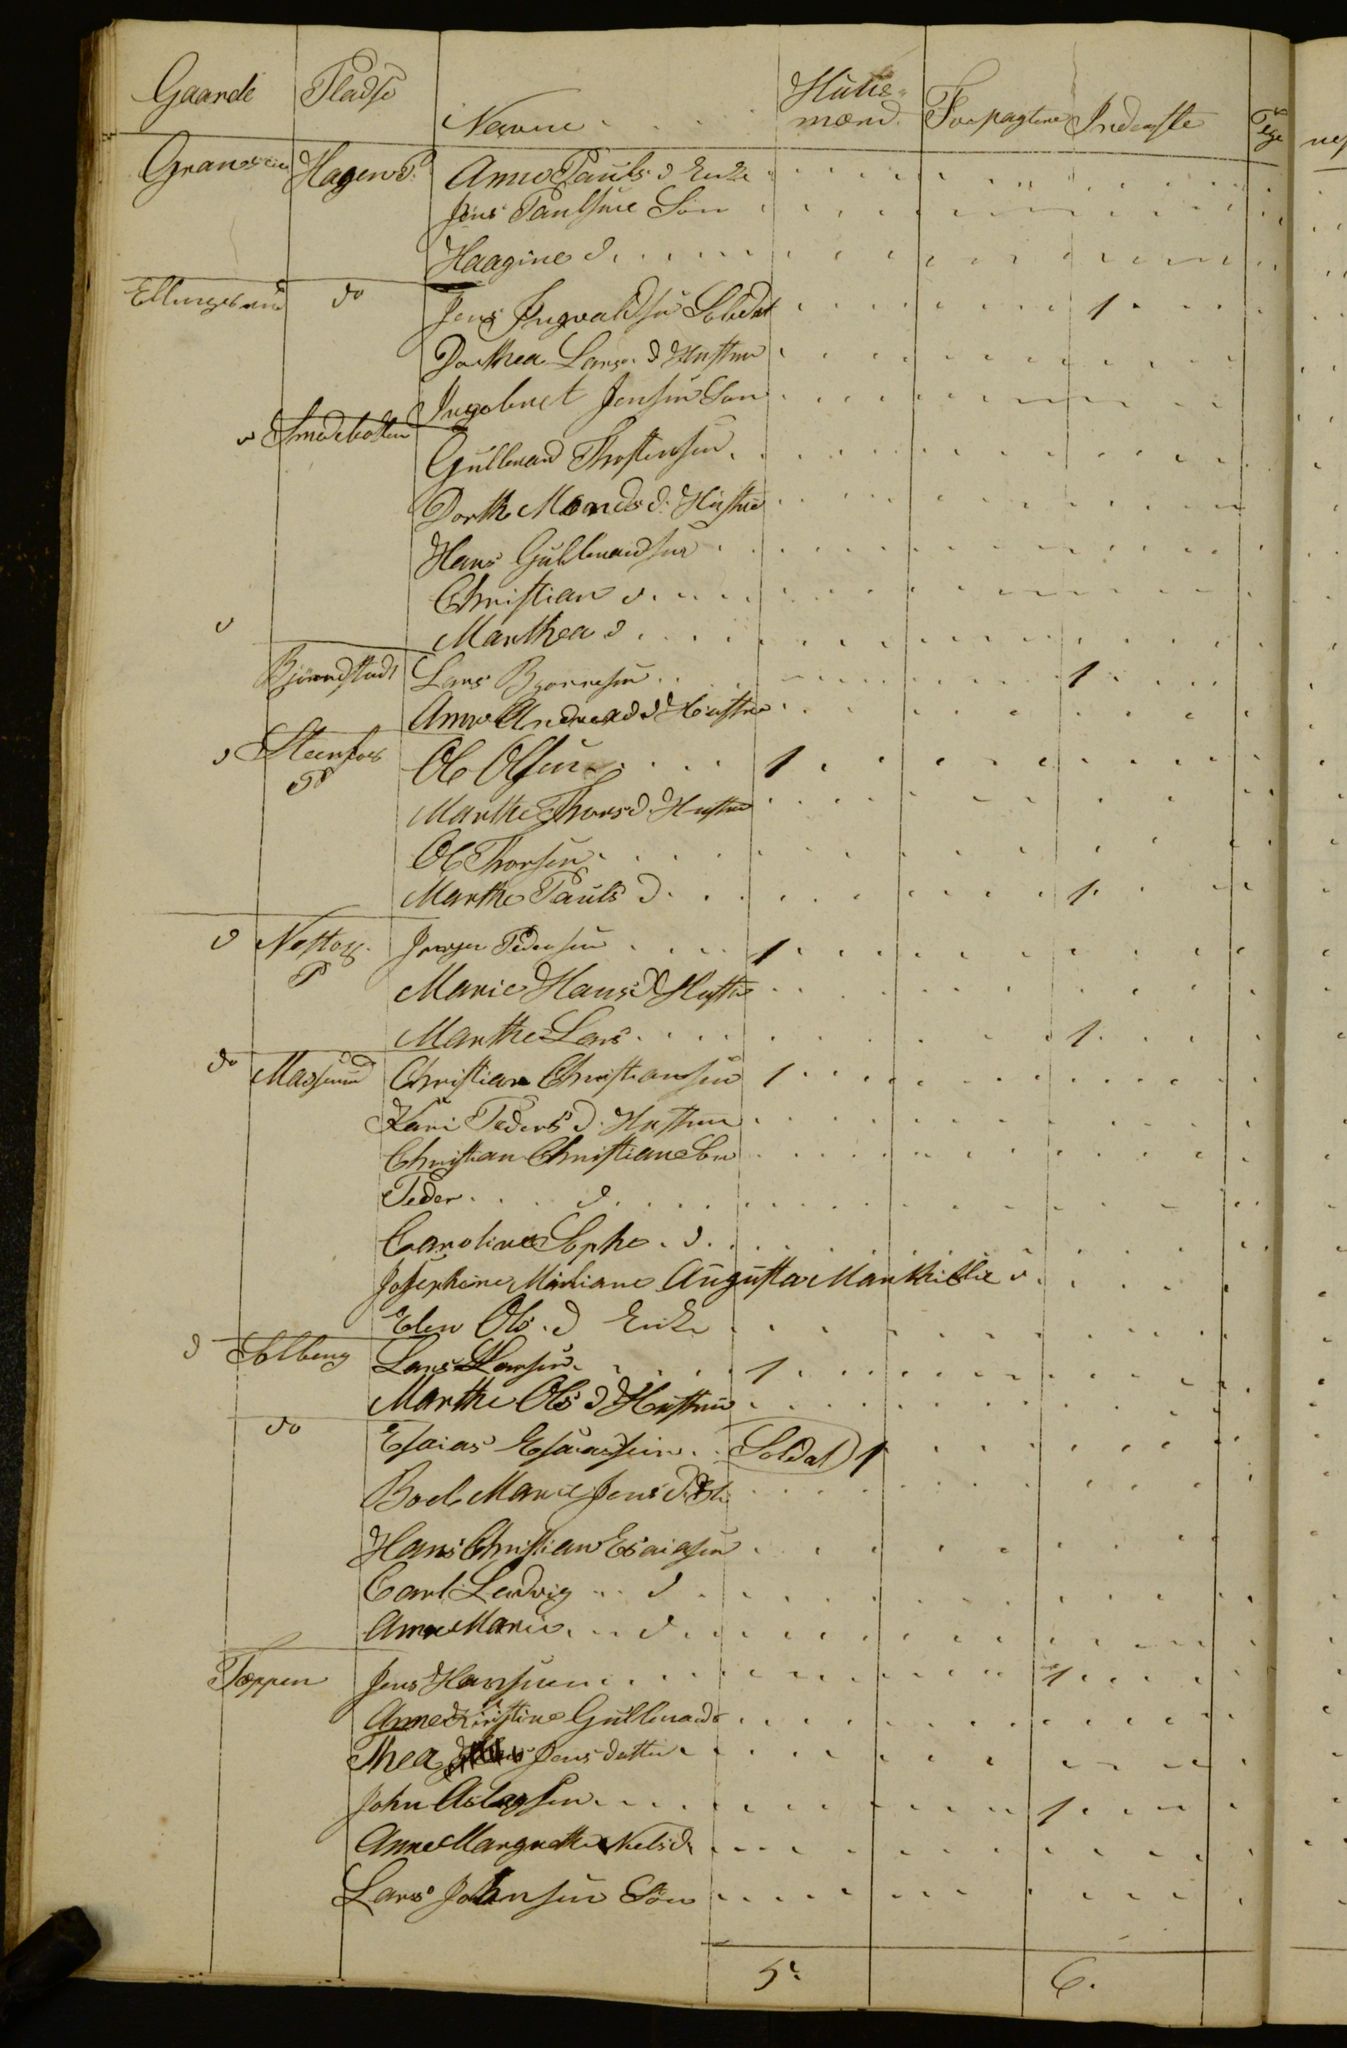 Gaarde Pladse Navne . . . Huus=mænd. Forpagtere Inderste
Hagen P. Anne Pauls d Enke
Jens Paulsen Søn
Haagine d
Ellingsrud do Jens Ingvaldsen Soldat 1
Dorthea Lars. d Hustrue
Ingebret Jensen Søn
d Smedbotten Gulbrand Thostensen
Dorthe Monds d. Hustrue
Hans Gulbrandsen
Christian d
d Marthea d
Bjørndstad Lars Bjørnesen 1
Anne Andreas d Hustrue
d Steenfos P Ole Olsen 1
Marthe Thors d Hustrue
Ole Thorsen
Marthe Pauls d 1
d P Jørgen Pedersen 1
Marie Hans d Hustrue
Marthe Lars 1
do Masserud Christian Christiansen 1
Kari Peders d. Hustrue
Christian Christian Søn
Peder . . . d
Caroline Sophe . d
Josephine Mariane Augusta Marthilde d
Elen Ols . d Enke
d Solberg Lars Larsen 1
Marthe Ols d Hustrue
do Esaias Esaiassen . . Soldat 1
Boel Marie Jens d.
Hans Christian Esaiasen
Carl Ludvig . . d
Anne Marie . . d
Toppen Jens Hansen 1
Anne Kirstine Gulbrands
Thea Jens datter
John Aslagsen 1
Anne Margrethe Niels d.
Lars Johnsen Søn
5. 6.